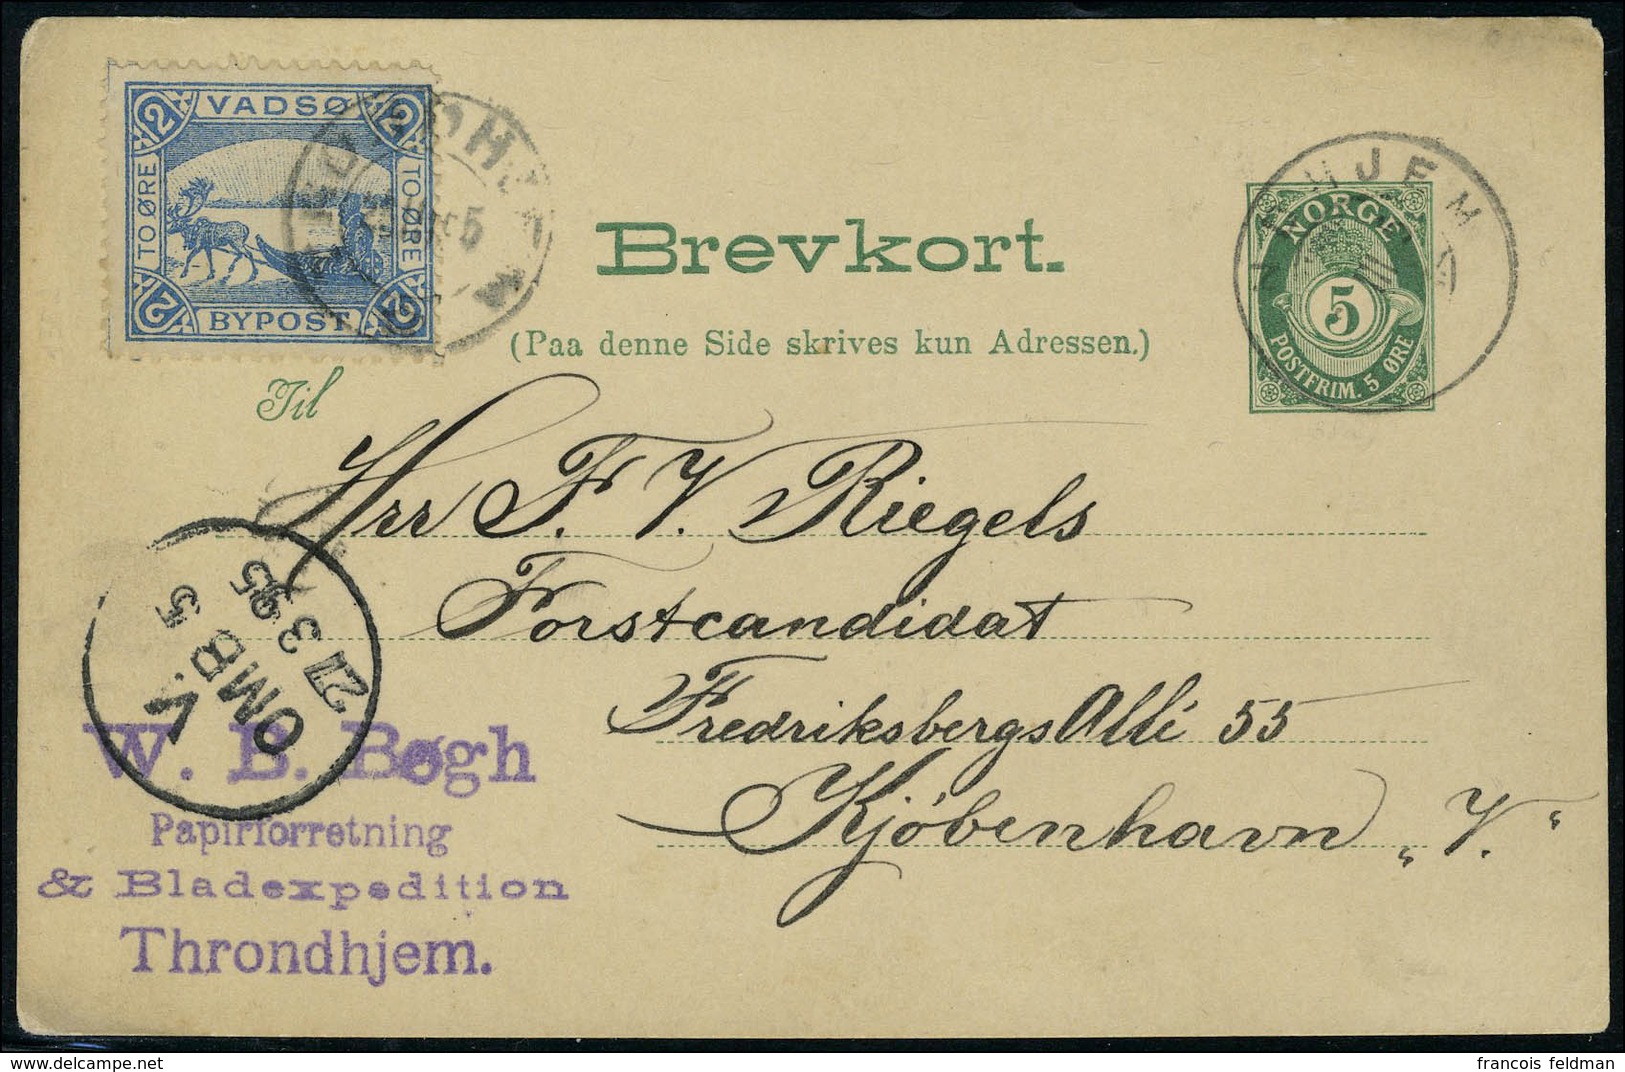 VADSØ
2 2
TO ØRE TO ØRE
2 2
BYPOST
5
Brevkort.
(Paa denne Side skrives kun Adressen.)
HJEM
NORGE
5
POSTFRIM. 5 ØRE
Til
Hrr F. V. Riegels
Forstcandidat
Fredriksbergs Allé 55
Kjóbenhavn „V.“
V.
OMB 5
27 3 95
W. B. Bøgh
Papirforretning
& Bladexpedition
Throndhjem.
delcampe.net
francois feldman